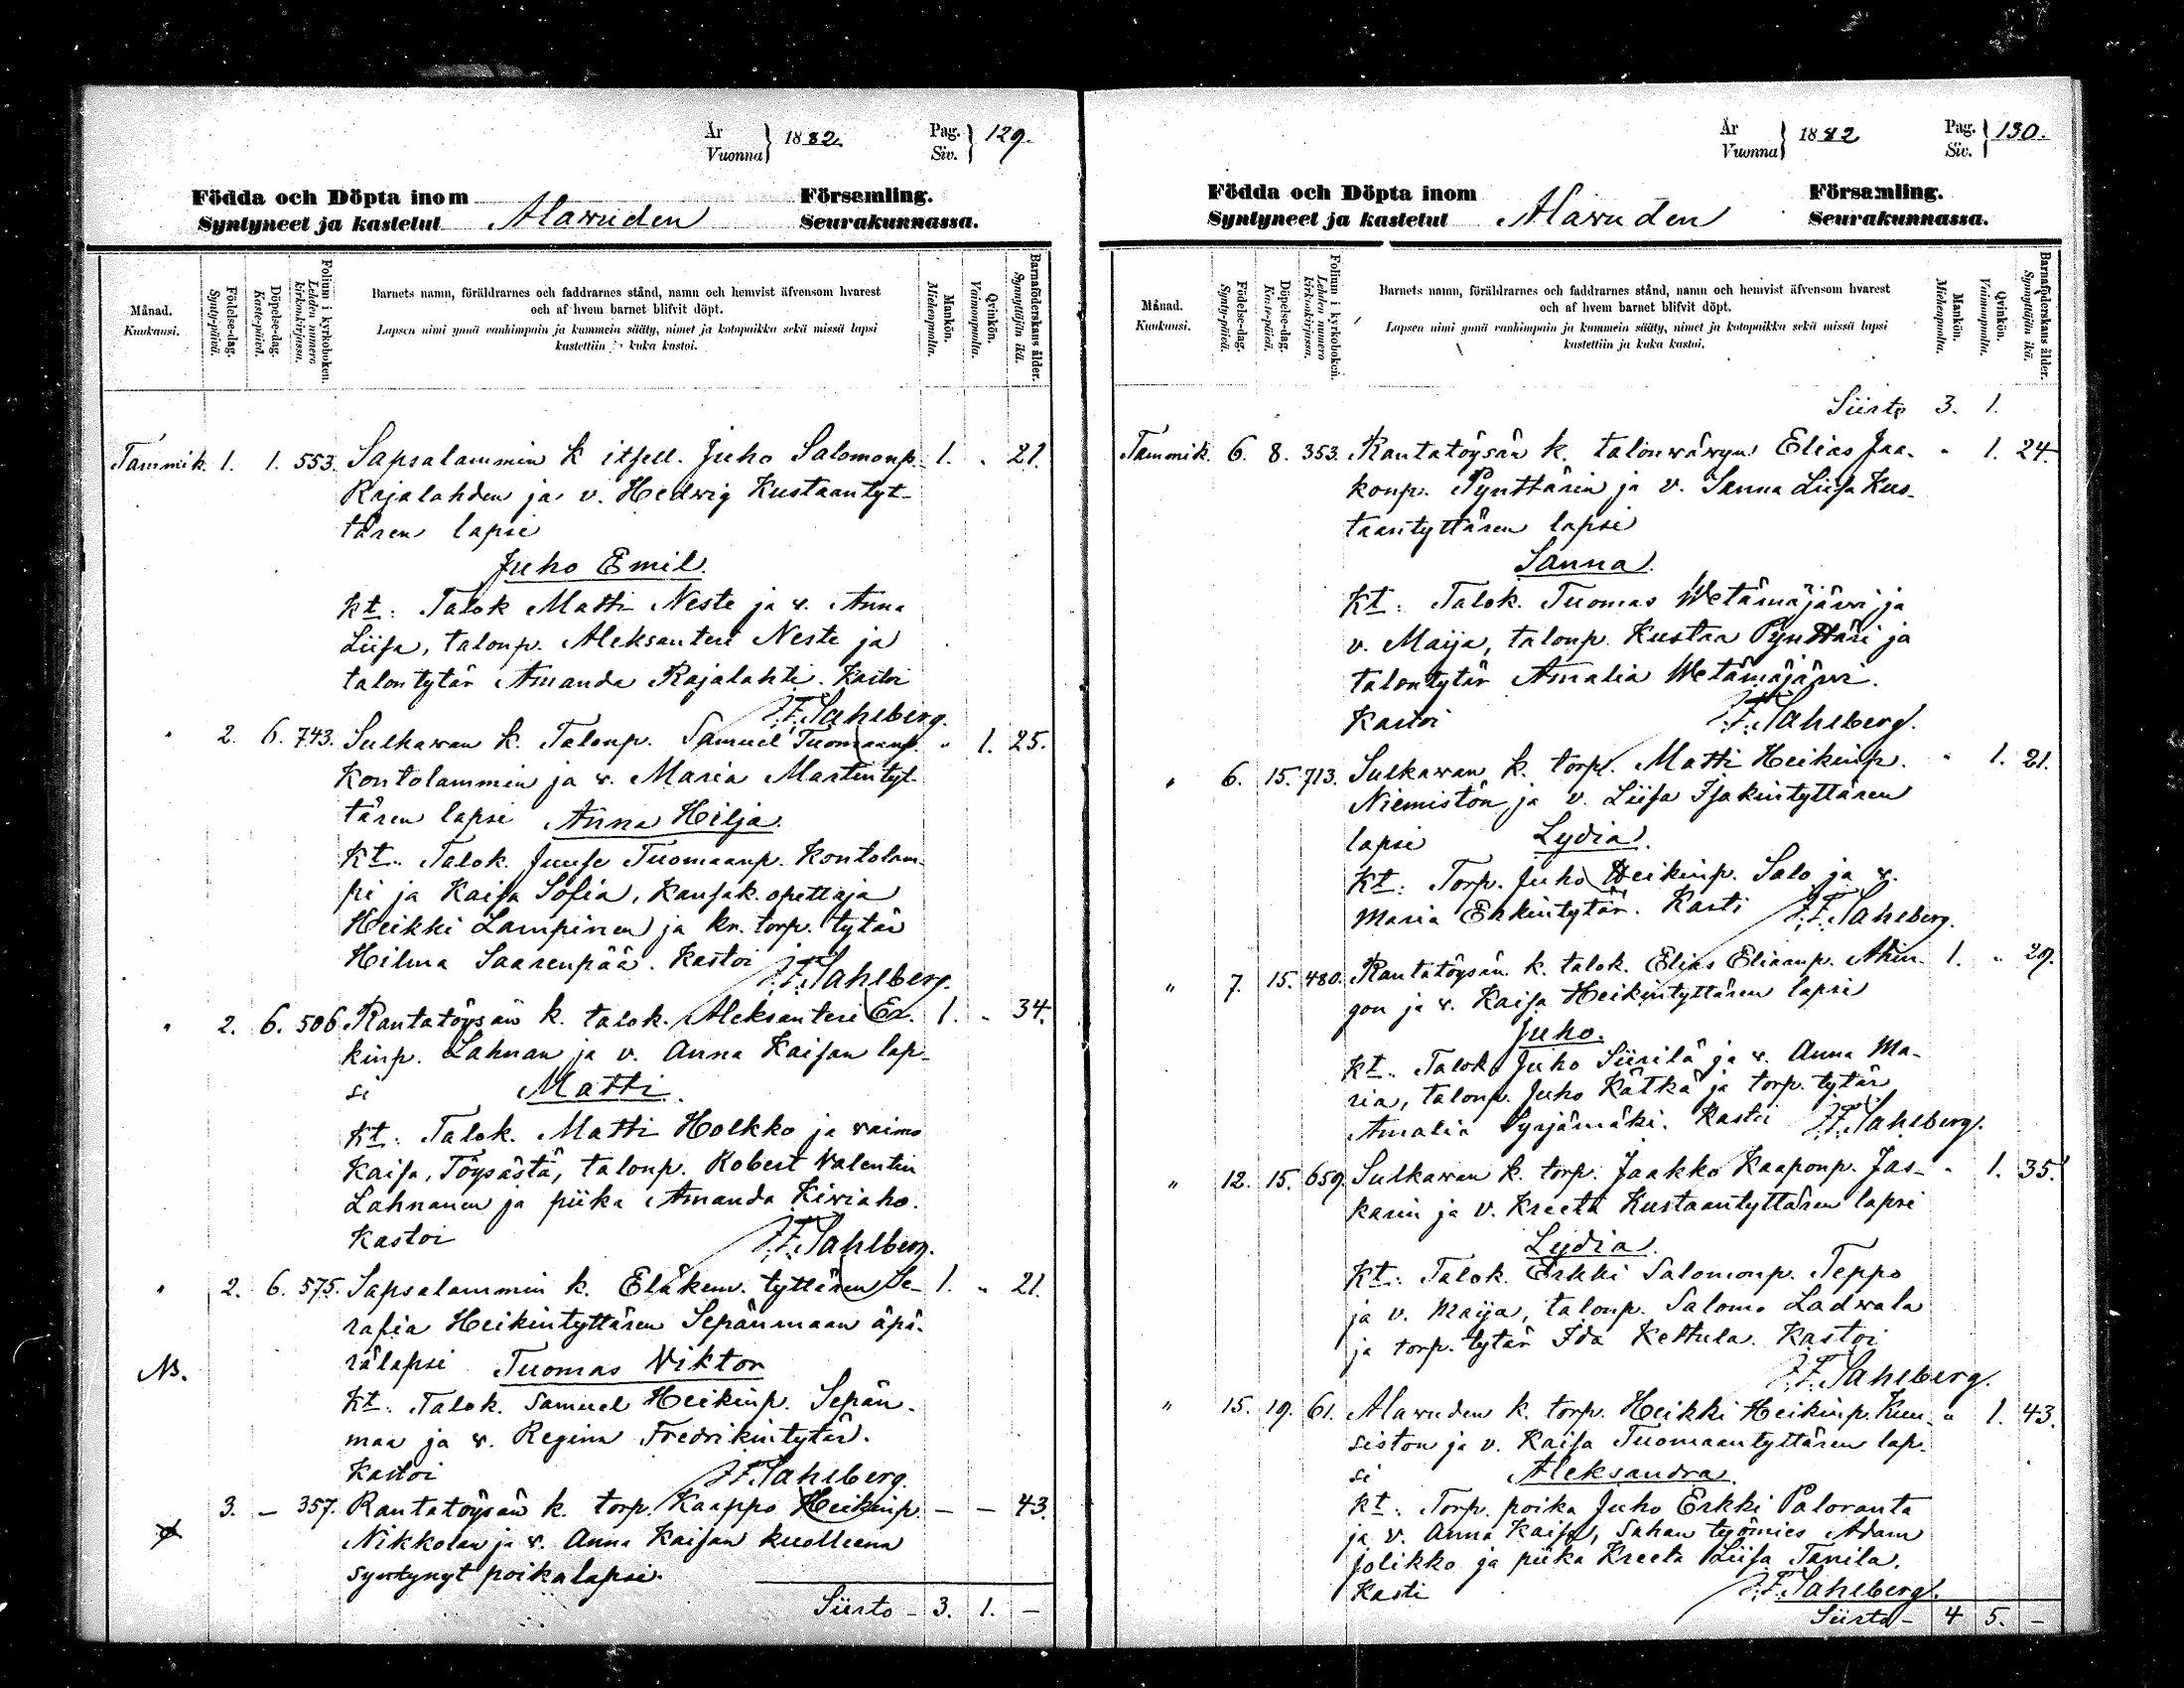 År
Vuonna } 1882. Pag.
Siv. } 129.
Födda och Döpta inom Församling.
Syntyneet ja kastetut Alawuden Seurakunnassa.
Månad.
Kuukausi.
Födelse-dag.
Synty-päivä.
Döpelse-dag.
Kaste-päivä.
Folium i kyrkoboken.
Lehden numero
kirkonkirjassa.
Barnets namn, föräldrarnes och faddrarnes stånd, namn och hemvist äfvensom hvarest
och af hvem barnet blifvit döpt.
Lapsen nimi ynnä vanhimpain ja kummein sääty, nimet ja kotopaikka sekä missä lapsi
kastettiin ja kuka kastoi.
Mankön.
Miehenpuolia.
Qvinkön.
Vaimonpuolia.
Barnaföderskans ålder.
Synnyttäjän ikä.
Tammik. 1. 1. 553. Sapsalammin k itsell. Juho Salomonp. 1. „ 21.
Rajalahden ja v. Hedwig Kustaantyt-
tären lapsi
Juho Emil.
Kt: Talok Matti Neste ja v. Anna
Liisa, talonp. Aleksanteri Neste ja
talontytär Amanda Rajalahti. Kastoi
J.F. Sahlberg.
„ 2. 6. 743. Sulkawan k. Talonp. Samuel Tuomaanp. „ 1. 25.
Kontolammin ja v. Maria Martintyt-
tären lapsi Anna Hilja.
Kt: Talok. Juuse Tuomaanp. Kontolam-
pi ja Kaisa Sofia, Kansak. opettaja
Heikki Lampinen ja kr. torp. tytär
Hilma Saarenpää. Kastoi J.F. Sahlberg.
„ 2. 6. 506 Rantatöysän k. talok. Aleksanteri Er- 1. „ 34.
kinp. Lahnan ja v. Anna Kaisan lap-
si Matti.
Kt: Talok. Matti Holkko ja vaimo
Kaisa, Töysästä, talonp. Robert Valentin
Lahnanen ja piika Amanda Kiviaho.
Kastoi J.F. Sahlberg.
„ 2. 6. 575. Sapsalammin k. Eläkem. tyttären Se- 1. „ 21.
rafia Heikintyttären Sepänmaan äpä-
rälapsi Tuomas Viktor
NB.
Kt: Talok. Samuel Heikinp. Sepän-
maa ja v. Regina Fredrikintytär.
Kastoi J.F. Sahlberg.
3. – 357. Rantatöysän k. torp. Kaappo Heikinp. – – 43.
Nikkolan ja v. Anna Kaisan kuolleena
syntynyt poikalapsi.
Siirto – 3. 1. –
År
Vuonna } 1882 Pag.
Siv. } 130.
Födda och Döpta inom Församling.
Syntyneet ja kastetut Alawuden Seurakunnassa.
Månad.
Kuukausi.
Födelse-dag.
Synty-päivä.
Döpelse-dag.
Kaste-päivä.
Folium i kyrkoboken.
Lehden numero
kirkonkirjassa.
Barnets namn, föräldrarnes och faddrarnes stånd, namn och hemvist äfvensom hvarest
och af hvem barnet blifvit döpt.
Lapsen nimi ynnä vanhimpain ja kummein sääty, nimet ja kotopaikka sekä missä lapsi
kastettiin ja kuka kastoi.
Mankön.
Miehenpuolia.
Qvinkön.
Vaimonpuolia.
Barnaföderskans ålder.
Synnyttäjän ikä.
Siirto 3. 1.
Tammik. 6. 8. 353. Rantatöysän k. talonwäwyn Elias Jaa- „ 1. 24.
konp. Pynttärin ja v. Sanna Liisa Kus-
taantyttären lapsi
Sanna.
Kt: Talok. Tuomas Wetämäjärvi ja
v. Maija, talonp. Kustaa Pynttäri ja
talontytär Amalia Wetämäjärvi.
Kastoi J.F. Sahlberg.
„ 6. 15. 713. Sulkawan k. torp. Matti Heikinp. „ 1. 21.
Niemistön ja v. Liisa Isakintyttären
lapsi Lydia.
Kt: Torp. Juho Heikinp. Salo ja v.
Maria Erkintytär. Kasti J.F. Sahlberg.
„ 7. 15. 480. Rantatöysän k. talok. Elias Eliaanp. Ahin- 1. „ 29.
gon ja v. Kaisa Heikintyttären lapsi
Juho.
Kt: Talok Juho Siirilä ja v. Anna Ma-
ria, talonp. Juho Kätkä ja torp. tytär
Amalia Syrjämäki. Kastoi J.F. Sahlberg.
„ 12. 15. 659. Sulkawan k. torp. Jaakko Kaaponp. Jas- „ 1. 35.
karin ja v. Kreeta Kustaantyttären lapsi
Lydia.
Kt: Talok. Erkki Salomonp. Teppo
ja v. Maija, talonp. Salomo Ladwala
ja torp. tytär Ida Kettula. Kastoi
J.F. Sahlberg.
„ 15. 19. 61. Alawuden k. torp. Heikki Heikinp. Kuu- „ 1. 43.
siston ja v. Kaisa Tuomaantyttären lap-
si Aleksandra.
Kt: Torp. poika Juho Erkki Paloranta
ja v. Anna Kaisa, Sahan työmies Adam
Jolikko ja piika Kreeta Liisa Tanila.
Kasti J.F. Sahlberg.
Siirto – 4 5. –